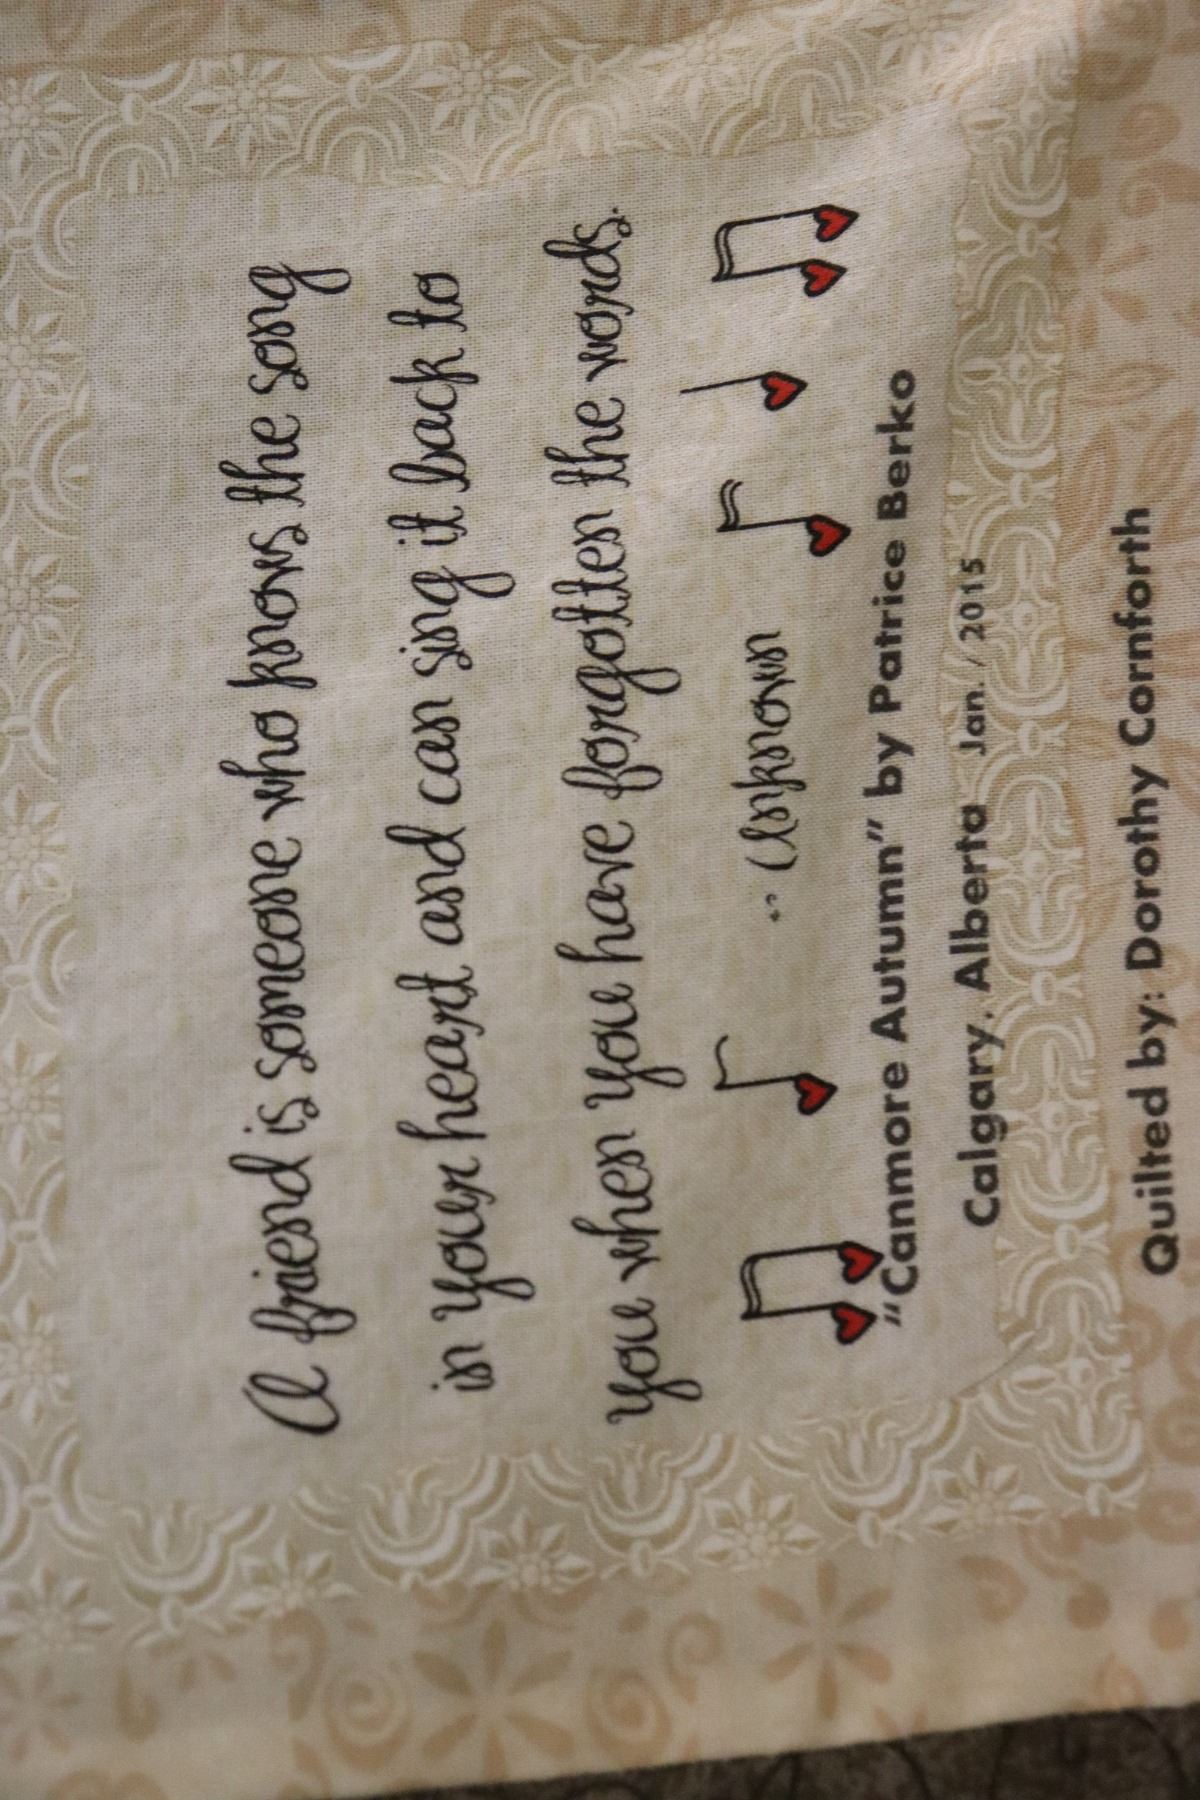 A friend is someone who knows the song
in your heart and can sing it back to
you when you have forgotten the words.
~ Unknown
"Canmore Autumn" by Patrice Berko
Calgary, Alberta Jan. / 2015
Quilted by: Dorothy Cornforth